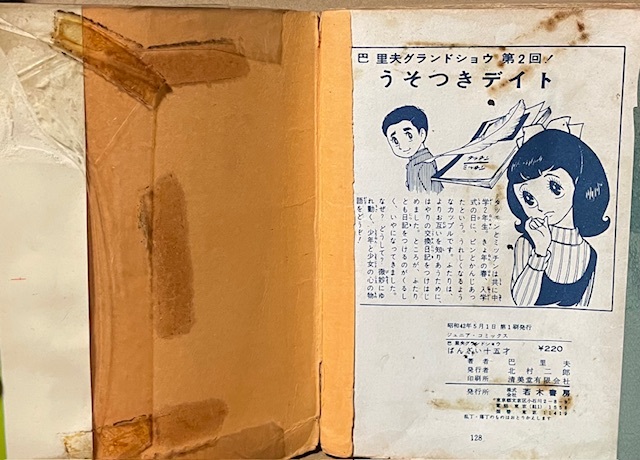 巴 里夫グランドショウ 第2回!
うそつきデイト
タッチン
ミッチン
タッチンとミッチンは共に中
学2年生。きょ年の春、入学
式の日に、ピンとかんじあっ
たという、うれしくなるよう
なカップルです。ふたりは、
よりお互いを知りあうために、
はやりの交換日記をつけはじ
めました。ところが、ふたり
とも日記をつけるのがくるし
く、いやになってきました。
なぜ?どうして?微妙にゆ
れ動く、少年と少女の心の物
語をどうぞ!
昭和42年5月1日 第1刷発行
ジュニア・コミックス
巴 里夫グランドショウ
ばんざい十五才 ¥220
著者 巴 里夫
発行者 北村二郎
印刷所 清美堂有限会社
発行所 株式会社 若木書房
東京都文京区小石川2-8-9
乱丁・落丁のものはおとりかえします
128